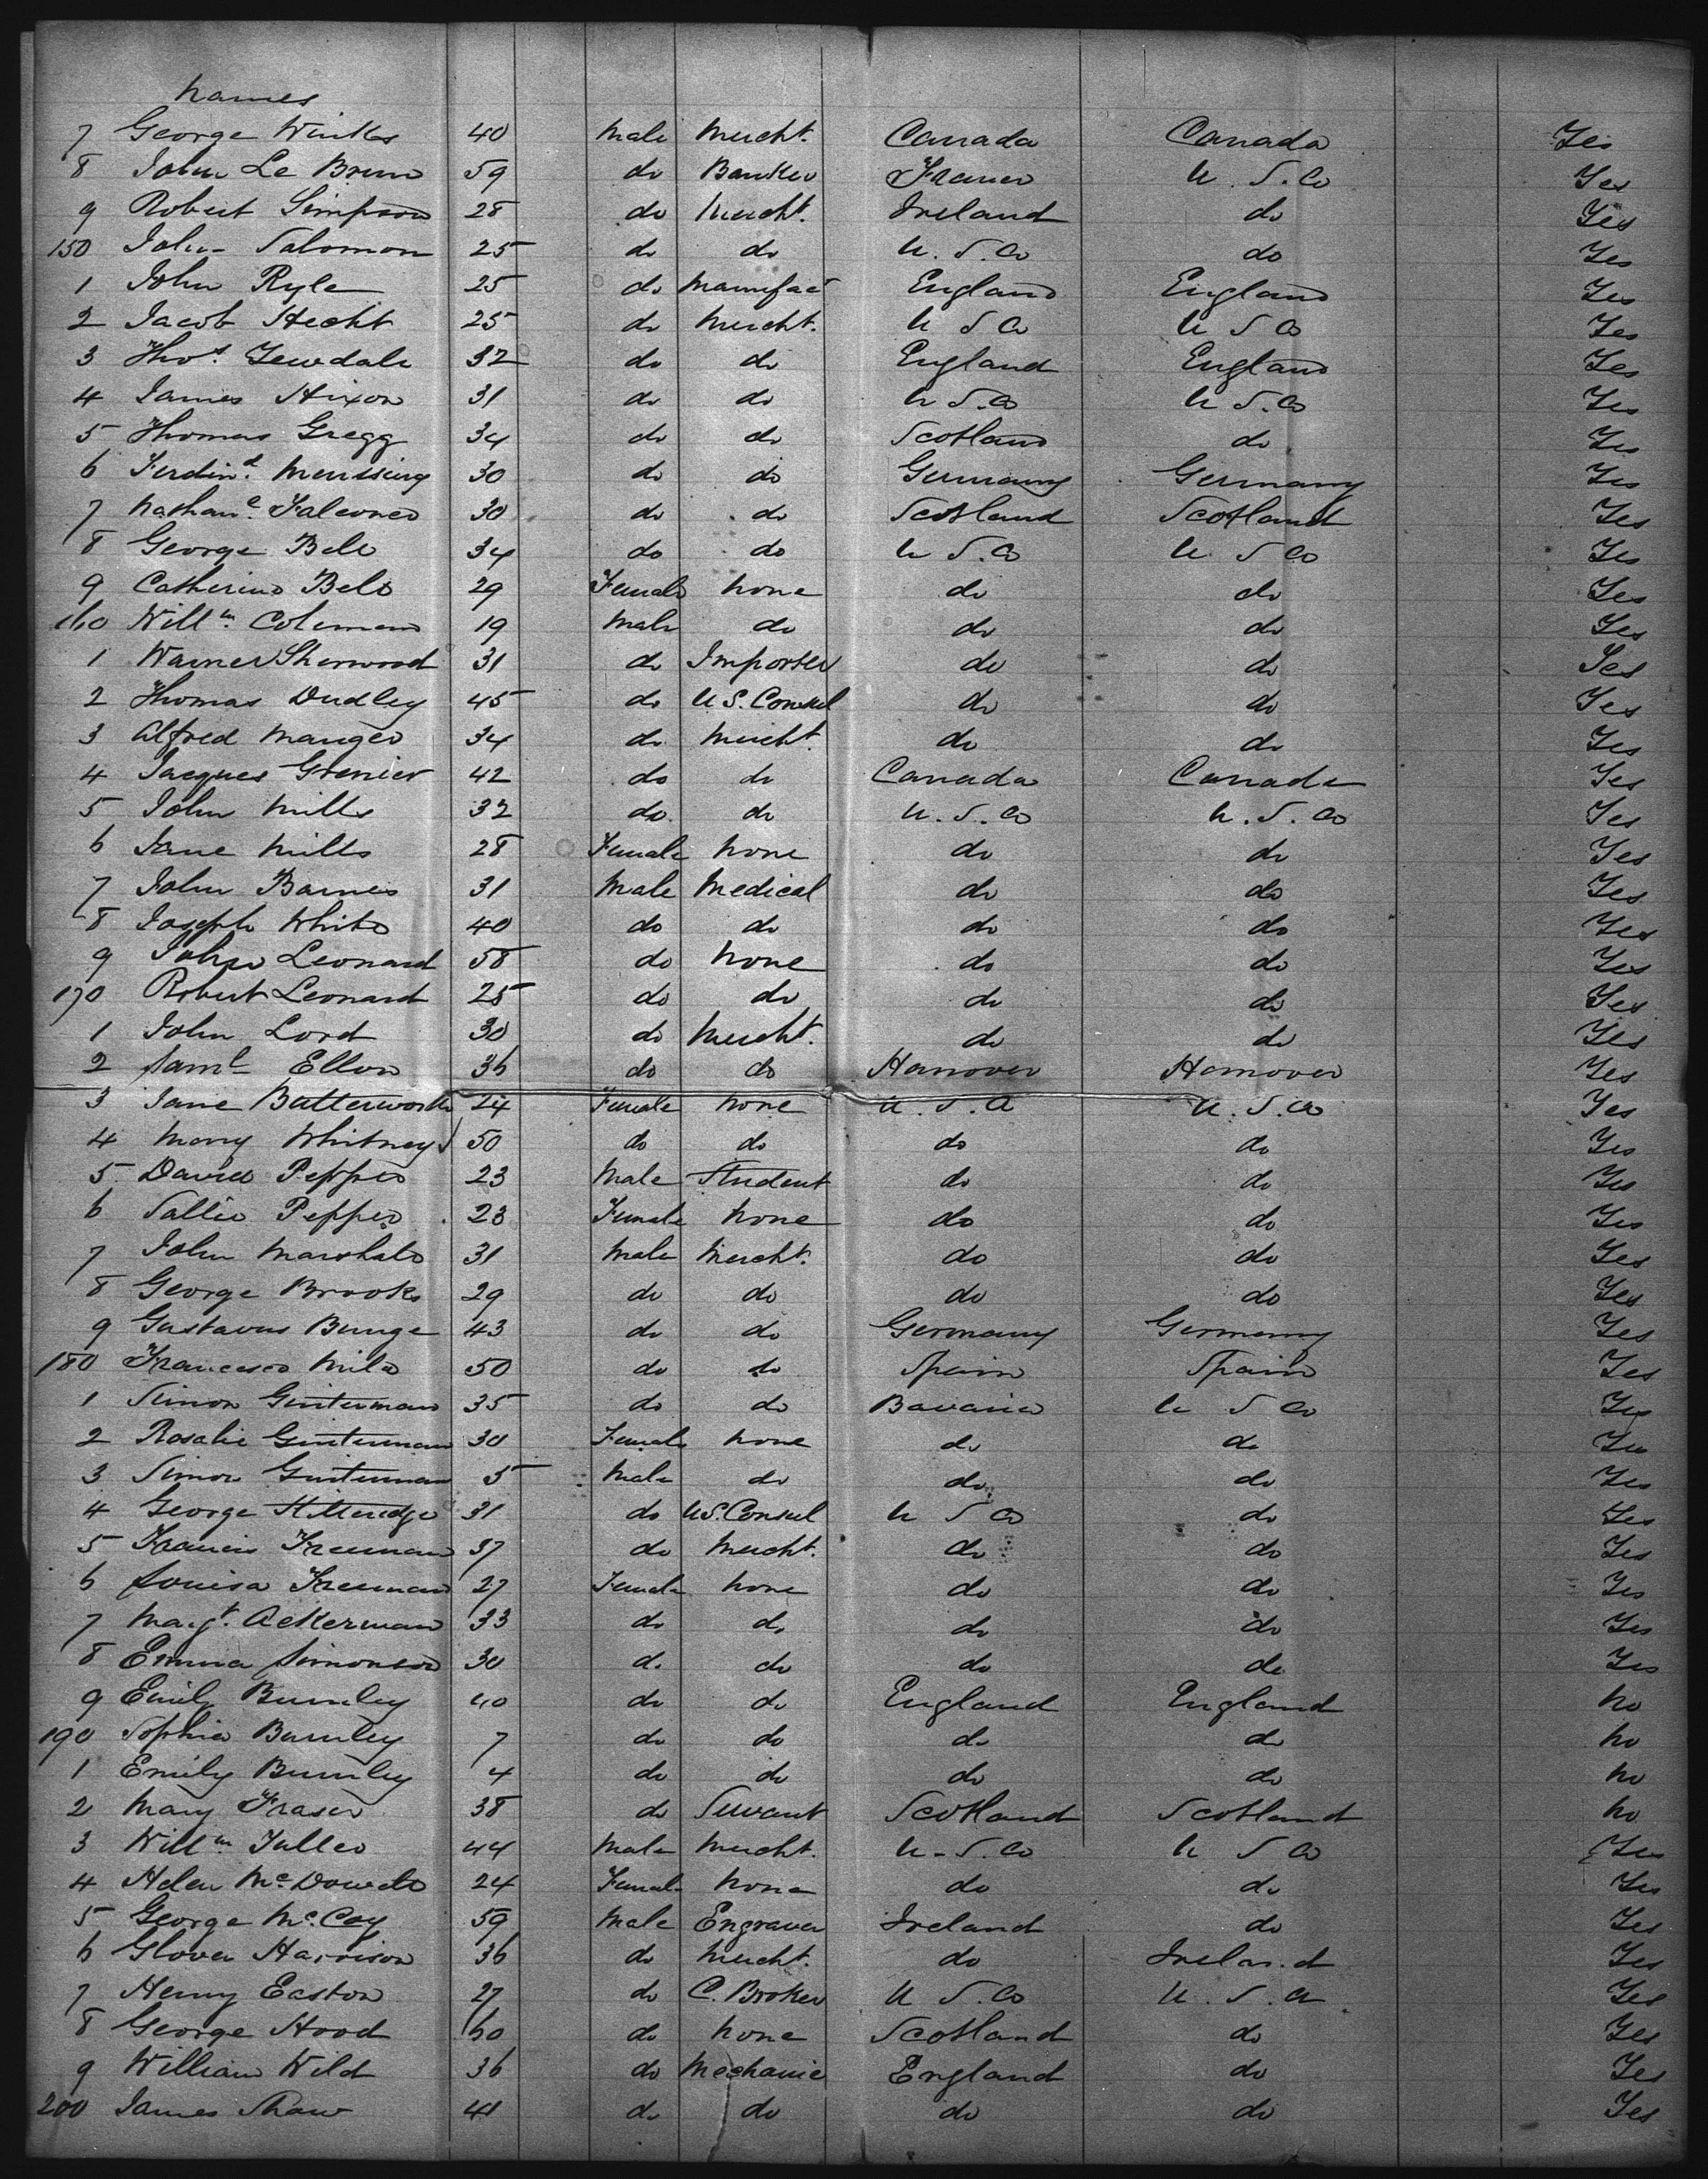 Names
7 George Winks 40 Male Mercht. Canada Canada Yes
8 John Le Brun 59 do Banker France U.S.A Yes
9 Robert Simpson 28 do Mercht. Ireland do Yes
150 John Salomon 25 do do U.S.A do Yes
1 John Ryle 25 do Manufact England England Yes
2 Jacob Hecht 25 do Mercht. U S A U S A Yes
3 Thos. Tewdale 32 do do England England Yes
4 James Hixon 31 do do U S.A U S.A Yes
5 Thomas Gregg 34 do do Scotland do Yes
6 Ferdind. 30 do do Germany Germany Yes
7 Nathane. Falconer 30 do do Scotland Scotland Yes
8 George Bell 34 do do U S.A U S A Yes
9 Catherine Bell 29 Female None do do Yes
160 Willm. Coleman 19 Male do do do Yes
1 Warner Sherwood 31 do Importer do do Yes
2 Thomas Dudley 45 do U.S. Consul do do Yes
3 Alfred Manger 34 do Mercht. do do Yes
4 Jacques Grenier 42 do do Canada Canada Yes
5 John Mills 32 do do U.S.A U.S.A Yes
6 Jane Mills 28 Female None do do Yes
7 John Barnes 31 Male Medical do do Yes
8 Joseph White 40 do do do do Yes
9 John Leonard 58 do None do do Yes
170 Robert Leonard 25 do do do do Yes
1 John Lord 30 do Mercht. do do Yes
2 Saml Ellon 36 do do Hanover Hanover Yes
3 Jane Butterworth 24 Female None U.S.A U.S.A Yes
4 Mary Whitney 50 do do do do Yes
5 David Pepper 23 Male Student do do Yes
6 Sallie Pepper 23 Female None do do Yes
7 John Marshall 31 Male Mercht. do do Yes
8 George Brooks 29 do do do do Yes
9 Gustavus Bunge 43 do do Germany Germany Yes
180 Francesco Mila 50 do do Spain Spain Yes
1 Simon Ginterman 35 do do Bavaria U S A Yes
2 Rosalie Ginterman 30 Female None do do Yes
3 Simon Ginterman 5 Male do do do Yes
4 George Kitteridge 31 do U.S. Consul U S A do Yes
5 Francis Freeman 37 do Mercht. do do Yes
6 Louisa Freeman 27 Female None do do Yes
7 Margt. Ackerman 33 do do do do Yes
8 Emma Simonson 30 do do do do Yes
9 Emily Burnley 40 do do England England No
190 Sophia Burnley 7 do do do do No
1 Emily Burnley 4 do do do do No
2 Mary Fraser 38 do Servant Scotland Scotland No
3 Willm. Fuller 44 Male Mercht. U.S.A U S A Yes
4 Helen McDowell 24 Female None do do Yes
5 George McCoy 59 Male Engraver Ireland do Yes
6 Glover Harrison 36 do Mercht. do Ireland Yes
7 Henry Easton 27 do C. Broker U S.A U.S.A Yes
8 George Hood 60 do None Scotland do Yes
9 William Wild 36 do Mechanic England do Yes
200 James Shaw 41 do do do do Yes